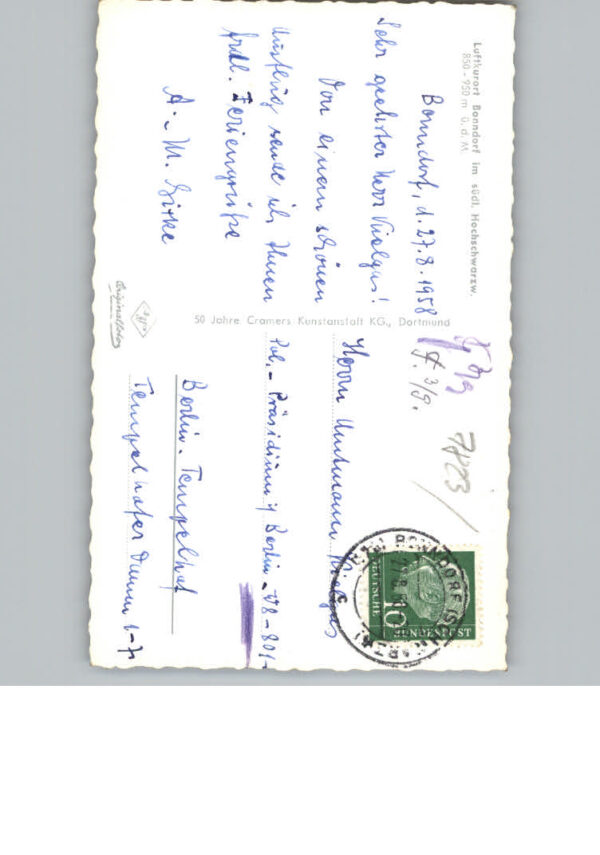 Luftkurort Bonndorf im südl. Hochschwarzw.
850 - 950 m ü. d. M.
Bonndorf, d. 27.8.1958
Sehr geehrter Herr
Von einem schönen
Ausflug sende ich Ihnen
frdl. Feriengrüße
A.-M.
50 Jahre Cramers Kunstanstalt KG., Dortmund
Originalfoto
3/9.
7823
Herrn Amtmann
Pol.-Präsidium Berlin - V8-801-
Berlin-Tempelhof
Tempelhofer Damm 1-7
BONNDORF
10
DEUTSCHE
BUNDESPOST